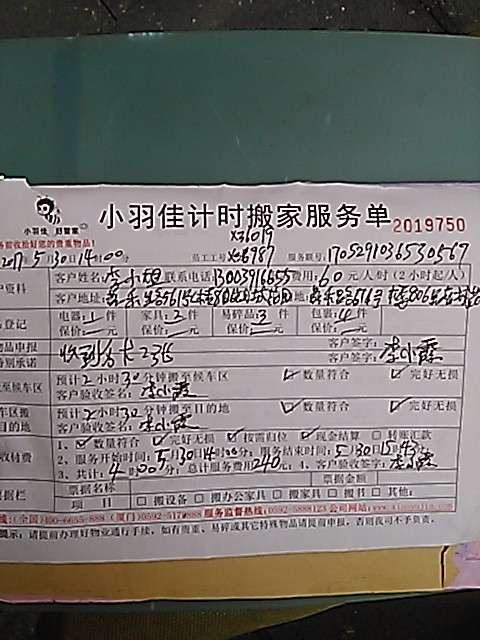 小羽佳 好管家
小羽佳计时搬家服务单
2019750
务前收拾好您的贵重物品！
X36019
2017 5.30 14:00
员工工号 X56987 服务联号: 1705291036530567
客户姓名: 李小姐 联系电话 13003916655 费用: 60元/人/时(2小时起/人)
客户资料 客户地址:
电器: 1件 家具: 2件 易碎品: 3件 包裹: 4件
登记 保价: 元 保价: 元 保价: 元 保价: 元
物品申报 客户签字:
特别承诺 李小霞
预计2小时30分钟搬至候车区 数量符合 完好无损
至候车区 客户验收签名: 李小霞
预计2小时30分钟搬至目的地 数量符合 完好无损
目的地 客户验收签名: 李小霞
1、数量符合 完好无损 按需归位 现金结算 转账汇款
收付费 2、服务开始时间: 5月30日14时00分; 服务结束时间: 5月30日15时43分
3、共计: 4时00分; 总计服务费用240元; 4、客户验收签字: 李小霞
票据名称 票据金额
票据栏 项目 搬设备 搬办公家具 搬家具 搬书 其他:
线:(全国)400-6655-888 服务监督热线:0592-5888123 公司网站:
提示: 请提前办理好物业通行手续，如有贵重、易碎或其它特殊物品请提前申报，否则我司不予负责。